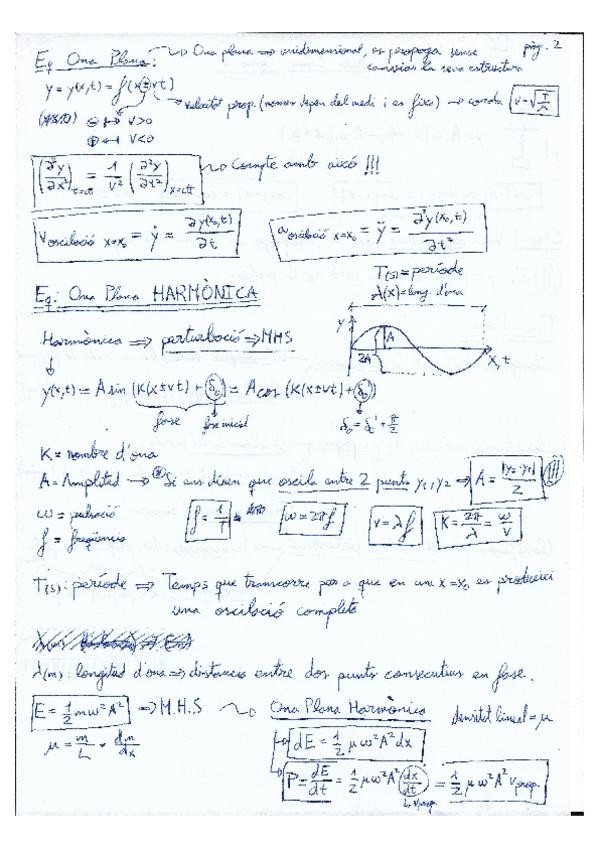 pàg. 2
Eq. Ona Plana: Ona plana ⇒ unidimensional, es propaga sense
canviar la seva estructura
y = y(x,t) = f(x±vt)
velocitat prop. (només depèn del medi i és fixe) → corda v=√(T/μ)
⊖ ↔ v>0
⊕ ↔ v<0
(∂²y/∂x²)t=ctt = 1/v² (∂²y/∂t²)x=ctt Compte amb això!!!
Voscil·lació x=x₀ = ẏ = ∂y(x₀,t)/∂t
aoscil·lació x=x₀ = ÿ = ∂²y(x₀,t)/∂t²
T(s) = període
λ(x) = long. d'ona
Eq: Ona Plana HARMÒNICA
Harmònica ⇒ pertorbació ⇒ MHS
y A 2A x, t
y(x,t) = A sin (K(x±vt) + δ₀) = A cos (K(x±vt) + δ₀)
fase fase inicial δ₀ = δ₀' + π/2
K = nombre d'ona
A = Amplitud → Si ens diuen que oscila entre 2 punts y₁, y₂ → A = |y₂-y₁|/2 !!!
ω = pulsació f = 1/T ω = 2πf v = λf K = 2π/λ = ω/v
f = freqüència
T(s): període ⇒ Temps que transcorre per a que en una x=x₀ es produeixi
una oscilació completa
λ(m) longitud d'ona ⇒ distància entre dos punts consecutius en fase.
E = 1/2 mω²A² ⇒ M.H.S Ona Plana Harmònica densitat lineal = μ
μ = m/L = dm/dx dE = 1/2 μω²A²dx
P = dE/dt = 1/2 μω²A² (dx/dt) = 1/2 μω²A² vprop.
vprop.